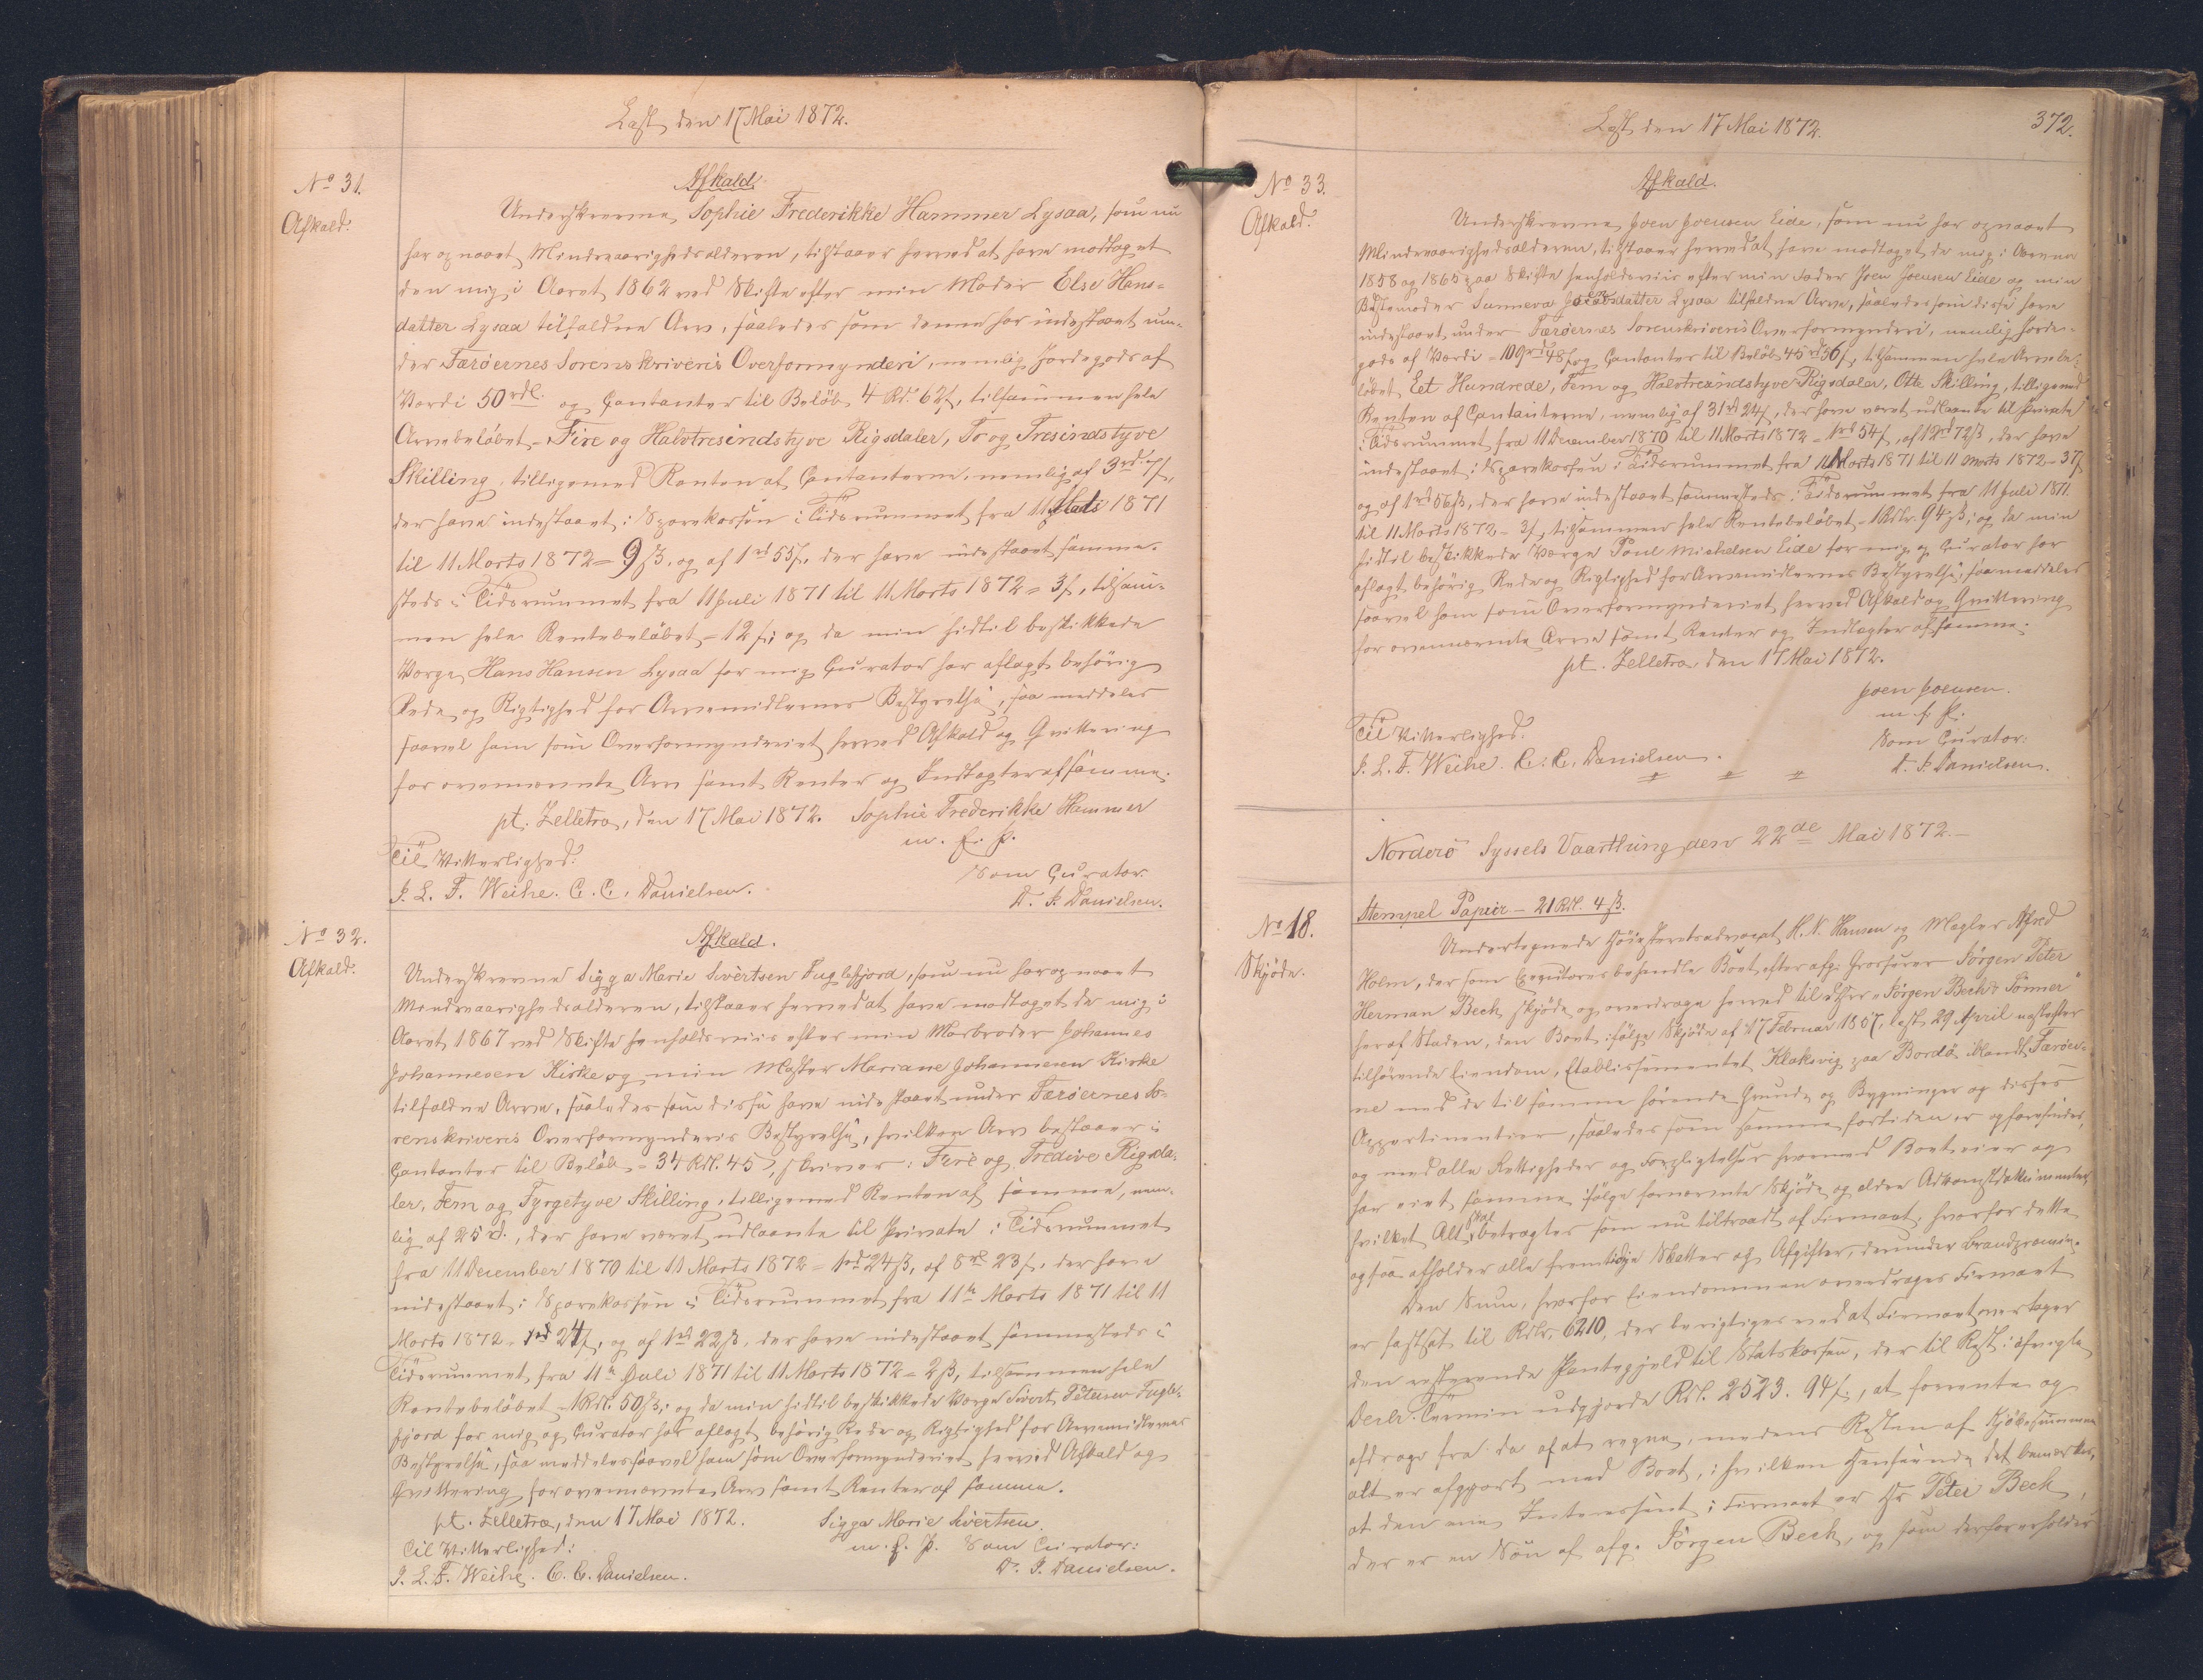 Læst den 17 Mai 1872.
No 31.
Afkald.
Afkald.
Underskrevne Sophie Frederikke Hammer Lysaa, som nu
har opnaaet Mindreaarighedsalderen, tilstaaer herved at have modtaget
den mig i Aaret 1862 ved Skifte efter min Moder Else Hans-
datter Lysaa tilfaldne Arv, saaledes som denne har indestaaet un-
der Færöernes Sorenskriveris Overformynderi, nemlig Jordegods af
Værdi 50 rdl. og Contanter til Beløb 4 Rd. 62 ß, tilsammen hele
Arvebeløbet - Fire og Halvtresindstyve Rigsdaler, To og Tresindstyve
Skilling, tilligemed Renten af Contanterne, nemlig af 3 rd. 7 ß,
der have indestaaet i Sparekassen i Tidsrummet fra 11 Marts 1871
til 11 Marts 1872 = 9 ß, og af 1 rd 55 ß, der have indestaaet samme-
steds i Tidsrummet fra 11 Juli 1871 til 11 Marts 1872 = 3 ß, tilsam-
men hele Rentebeløbet = 12 ß; og da min hidtil beskikkede
Værge Hans Hansen Lysaa for mig Curator har aflagt behörig
Rede og Rigtighed for Arvemidlernes Bestyrelse, saa meddeles
saavel ham som Overformynderiet herved Afkald og Qvittering
for ovennævnte Arv samt Renter og Indtægter af samme.
pt. Zelletræ, den 17 Mai 1872. Sophie Frederikke Hammer
m. f. P.
Til Vitterlighed:
Som Curator:
J. L. F. Weihe. C. C. Danielsen.
D. P. Danielsen.
No 32.
Afkald.
Afkald.
Underskrevne Sigga Marie Sivertsen Fuglefjord, som nu har opnaaet
Mindreaarighedsalderen, tilstaaer herved at have modtaget de mig i
Aaret 1867 ved Skifte henholdsviis efter min Morbroder Johannes
Johannesen Kirke og min Moster Mariane Johannesen Kirke
tilfaldne Arve, saaledes som disse have indestaaet under Færöernes So-
renskriveris Overformynderis Bestyrelse, hvilken Arv bestaaer i
Contanter til Beløb = 34 Rdl. 45 ß, skriver: Fire og Tredive Rigsda-
ler, Fem og Fyrgetyve Skilling, tilligemed Renten af samme, nem-
lig af 25 rd., der have været udlaante til Private i Tidsrummet
fra 11 December 1870 til 11 Marts 1872 = 1 rd 24 ß, af 8 rd 23 ß, der have
indestaaet i Sparekassen i Tidsrummet fra 11te Marts 1871 til 11
Marts 1872 = 24 ß, og af 1 rd 22 ß, der have indestaaet sammesteds i
Tidsrummet fra 11te Juli 1871 til 11 Marts 1872 = 2 ß, tilsammen hele
Rentebeløbet 1 Rdl. 50 ß; og da min hidtil beskikkede Værge Sivert Petersen Fugle-
fjord for mig og Curator har aflagt behörig Rede og Rigtighed for Arvemidlernes
Bestyrelse, saa meddeles saavel ham som Overformynderiet herved Afkald og
Qvittering for ovennævnte Arv samt Renter af samme.
pt. Zelletræ, den 17 Mai 1872. Sigga Marie Sivertsen.
m. f. P. Som Curator:
Til Vitterlighed:
J. L. F. Weihe. C. C. Danielsen.
D. P. Danielsen.
Læst den 17 Mai 1872.
372.
No 33.
Afkald.
Afkald.
Underskrevne Joen Joensen Eide, som nu har opnaaet
Mindreaarighedsalderen, tilstaaer herved at have modtaget de mig i Aarene
1858 og 1865 paa Skifte henholdsviis efter min Fader Joen Joensen Eide og min
Bedstemoder Sunneva datter Lysaa tilfaldne Arve, saaledes som disse have
indestaaet under Færöernes Sorenskriveris Overformynderi, nemlig Jorde-
gods af Værdi = 109 rd 48 ß og Contanter til Beløb 45 rd 56 ß, tilsammen hele Arvebe-
löbet Eet Hundrede, Fem og Halvtresindstyve Rigsdaler, Otte Skilling, tilligemed
Renten af Contanterne, nemlig af 31 rd 24 ß, der have været udlaante til Private
i Tidsrummet fra 11 December 1870 til 11 Marts 1872 = 1 rd 54 ß, af 12 rd 72 ß, der have
indestaaet i Sparekassen i Tidsrummet fra 11 Marts 1871 til 11 Marts 1872 = 37 ß
og af 1 rd 56 ß, der have indestaaet sammesteds i Tidsrummet fra 11 Juli 1871
til 11 Marts 1872 = 3 ß, tilsammen hele Rentebeløbet = 1 Rdlr. 94 ß; og da min
hidtil beskikkede Værge Poul Michelsen Eide for mig og Curator har
aflagt behörig Rede og Rigtighed for Arvemidlernes Bestyrelse, saa meddeles
saavel ham som Overformynderiet herved Afkald og Qvittering
for ovennævnte Arve samt Renter og Indtægter af samme.
pt. Zelletræ den 17 Mai 1872.
Joen Joensen.
m. f. P.
Til Vitterlighed:
Som Curator:
J. L. F. Weihe. C. C. Danielsen.
D. P. Danielsen.
Norderö Syssels Vaarthing den 22de Mai 1872.
No 18.
Skjöde.
Stempel Papir - 21 Rdl. 4 ß.
Undertegnede Höiesteretsadvocat H. N. Hansen og Mægler Alfred
Holm, der som Executores behandle Boet efter afg. Grosserer Jörgen Peter
Herman Beck skjöde og overdrage herved til DHrr. "Jörgen Bech & Sönner"
heraf Staden, den Boet ifölge Skjöde af 17 Februar 1857, læst 29 April næstefter
tilhörende Eiendom, Etablissementet Klaksvig paa Bordö iblandt Færöer-
ne med de til samme hörende Grunde og Bygninger og disses
Appertinentier, saaledes som samme for tiden er og forefindes,
og med alle Rettigheder og Forpligtelser hvormed Boet eier og
har eiet samme ifölge fornævnte Skjöde og ældre Adkomstdokumenter,
hvilket Alt skal betragtes som nu tiltraadt af Firmaet, hvorfor dette
ogsaa afholder alle fremtidige Skatter og Afgifter, derunder Brandpræmie.
Den Sum, hvorfor Eiendommen overdrages Firmaet
er fastsat til Rdlr. 6210, der berigtiges ved at Firmaet overtager
den resterende Pantegjeld til Statskassen, der til Rest i afvigte
Decbr. Termin udgjorde Rdl. 2523. 94 ß, at forrente og
afdrage fra da af at regne, medens Resten af Kjöbesummen
alt er afgjort med Boet, i hvilken Henseende det bemærkes,
at den ene Interessent i Firmaet er Hr Peter Beck,
der er en Sön af afg. Jörgen Beck, og som derfor erholder